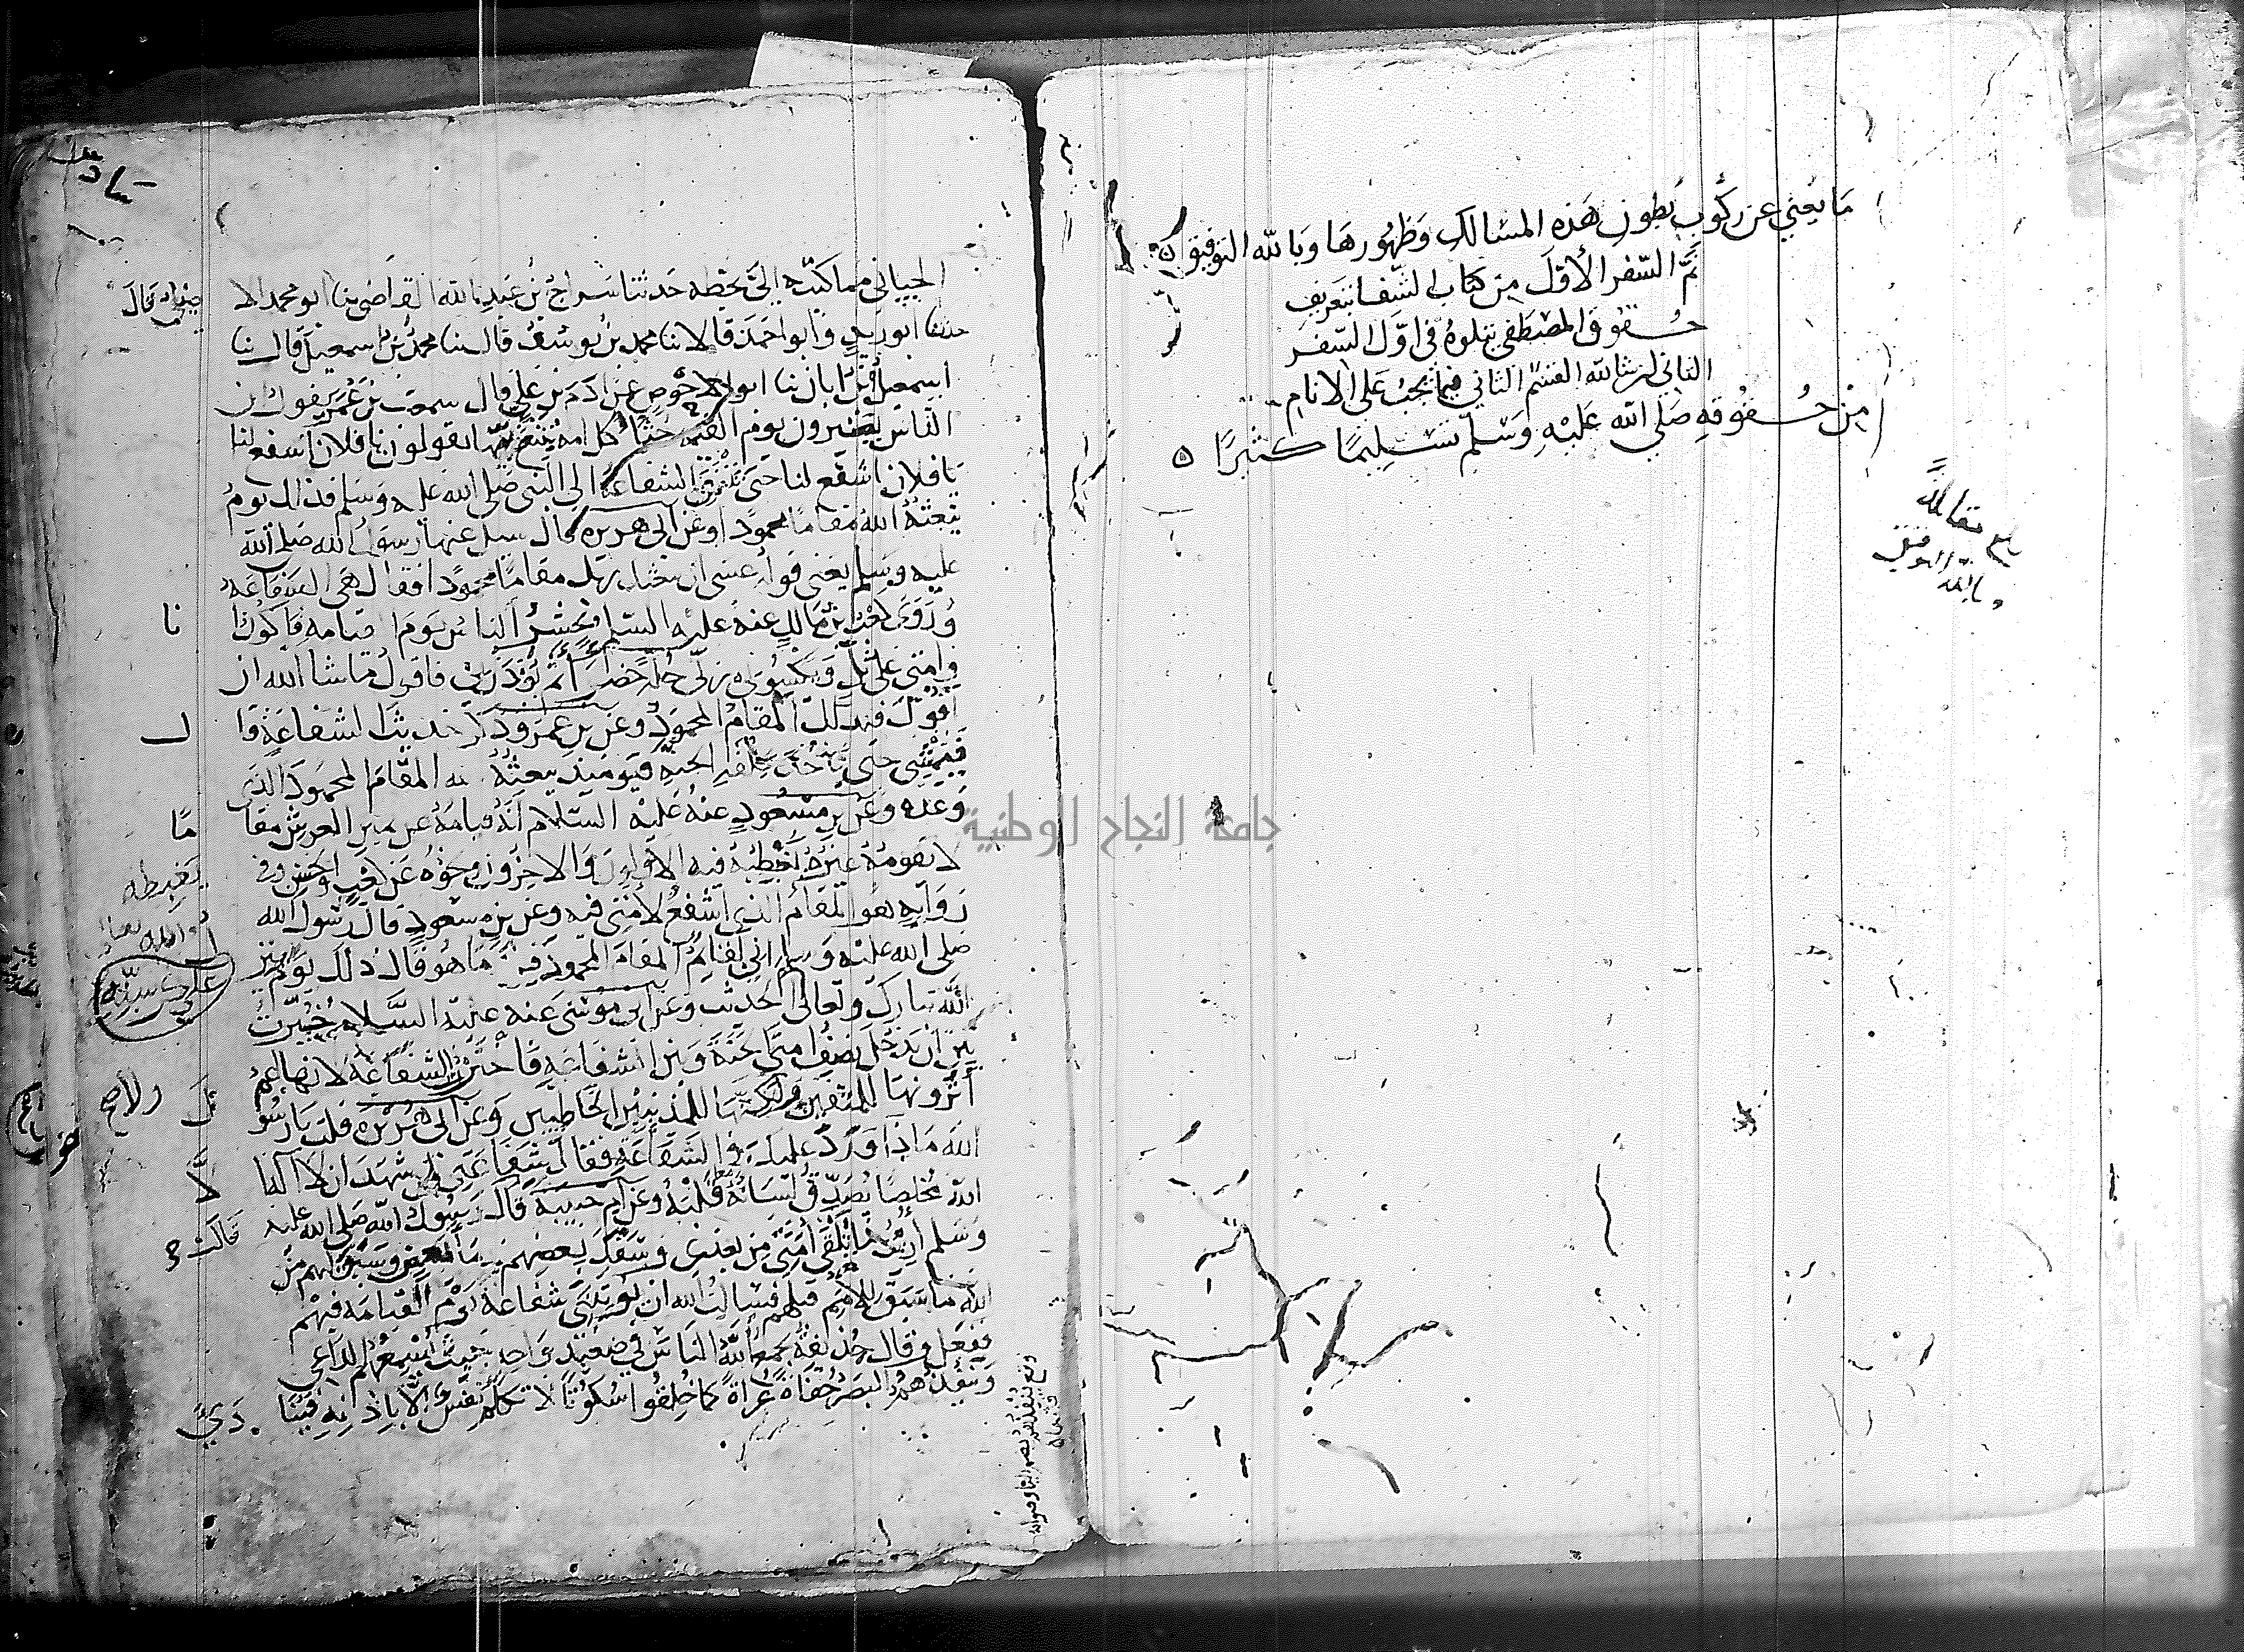 ما يغني عن ركوب بطون هذه المسالك وظهورها وبالله التوفيق
تم السفر الأول من كتاب الشفا بتعريف
حقوق المصطفى يتلوه في اول السفر
الثاني ان شا الله القسم الثاني فيما يجب على الانام
من حقوقه صلى الله عليه وسلم تسليما كثيرا
بلغ مقابلة
وبالله التوفيق
سادس
الجياني مما كتبه الي بخطه حدثنا سراج بن عبد الله القاضي نا ابو محمد الا صيلي قال
حدثنا ابو زيد وابو احمد قالا نا محمد بن يوسف قال نا محمد بن اسمعيل قال نا
اسمعيل بن ابان نا ابو الاحوص عن ادم بن علي قال سمعت بن عمر يقول ان
الناس يصيرون يوم القيمة جثا كل امة تتبع نبيها يقولون يا فلان اشفع لنا
يا فلان اشفع لنا حتى تنتهي الشفاعة الى النبي صلى الله عليه وسلم فذلك يوم
يبعثه الله مقاما محمودا وعن ابي هريره قال سيل عنها رسول الله صلى الله
عليه وسلم يعني قوله عسى ان يبعثك ربك مقاما محمودا فقال هي الشفاعة
وروى كعب بن مالك عنه عليه السلم يحشر الناس يوم القيامه فاكون انا
وامتي على تل ويكسوني ربي حلة خضرا ثم يوذن لي فاقول ما شا الله ان
اقول فذلك المقام المحمود وعن بن عمر وذكر حديث الشفاعة قال
فيمشي حتى ياخذ بحلقة الجنه فيوميذ يبعثه الله المقام المحمود الذي
وعده وعن بن مسعود عنه عليه السلام انه قيامه عن يمين العرش مقاما
لا يقومه غيره يغبطه فيه الاولون والاخرون ونحوه عن كعب والحسن وفي
رواية هو المقام الذي اشفع لأمتي فيه وعن بن مسعود قال رسول الله
صلى الله عليه وسلم اني لقايم المقام المحمود قيل ما هو قال ذلك يوم ينزل
الله تبارك وتعالى الحديث وعن ابي موسى عنه عليه السلام خيرت
بين ان يدخل نصف امتي الجنة وبين الشفاعة فاخترت الشفاعة لانها اعم
أترونها للمتقين ولكنها للمذنبين الخاطيين وعن ابي هريره قلت يا رسول
الله ماذا ورد عليك في الشفاعة فقال شفاعتي لمن شهد ان لا اله الا
الله مخلصا يصدق لسانه قلبه وعن ام حبيبة قالت قال رسول الله صلى الله عليه
وسلم أريت ما تلقى أمتي من بعدي وسفك بعضهم دما بعض وسبق لهم من
الله ما سبق للأمم قبلهم فسالت الله ان يوتيني شفاعة يوم القيامة فيهم
ففعل وقال حذيفة يجمع الله الناس في صعيد واحد حيث يسمعهم الداعي
وينفذهم البصر حفاة عراة كما خلقوا سكوتا لا تكلم نفس الا باذنه فينادي
يغبطه
على كرسيه
جامعة النجاح الوطنية